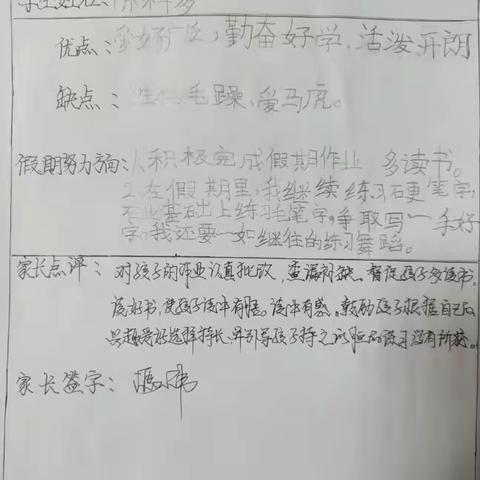 学生姓名:
优点:爱好广泛,勤奋好学、活泼开朗
缺点:性格毛躁、爱马虎。
假期努力方向:1.积极完成假期作业 多读书。
2.在假期里,我继续练习硬笔字,
在此基础上练习毛笔字,争取写一手好
字,我还要一如继往的练习舞蹈。
家长点评:对孩子的作业认真批改,查漏补缺。督促孩子多读书,
读好书,使孩子读中有悟,读中有感。鼓励孩子根据自己的
兴趣爱好选择特长,并引导孩子持之以恒的练习
家长签字: